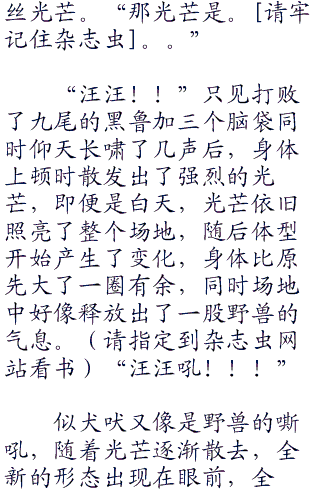 丝光芒。“那光芒是。[请牢
记住杂志虫]。。”
“汪汪！！”只见打败
了九尾的黑鲁加三个脑袋同
时仰天长啸了几声后，身体
上顿时散发出了强烈的光
芒，即便是白天，光芒依旧
照亮了整个场地，随后体型
开始产生了变化，身体比原
先大了一圈有余，同时场地
中好像释放出了一股野兽的
气息。（请指定到杂志虫网
站看书）“汪汪吼！！！”
似犬吠又像是野兽的嘶
吼，随着光芒逐渐散去，全
新的形态出现在眼前，全